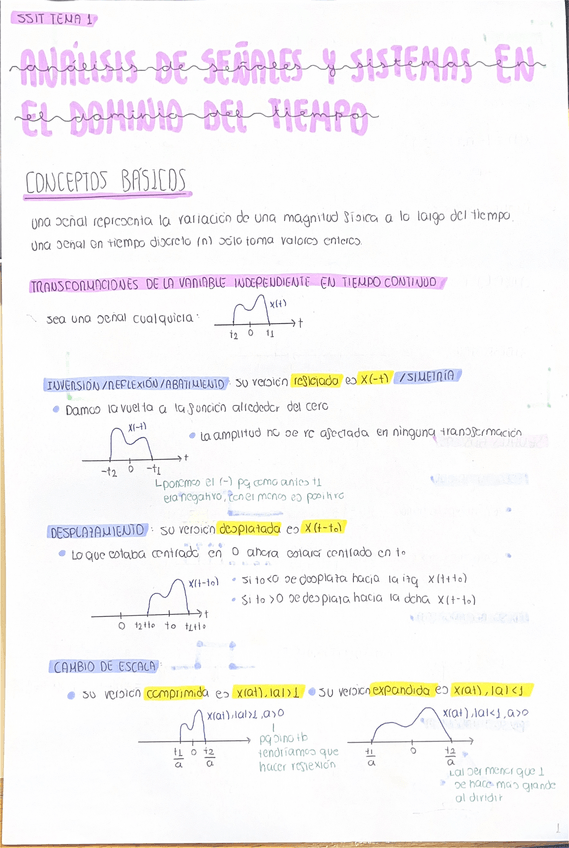 SSIT TEMA 1
ANÁLISIS DE SEÑALES Y SISTEMAS EN
análisis de señales y sistemas en
EL DOMINIO DEL TIEMPO
el dominio del tiempo
CONCEPTOS BÁSICOS
una señal representa la variación de una magnitud física a lo largo del tiempo.
una señal en tiempo discreto (n) sólo toma valores enteros.
TRANSFORMACIONES DE LA VARIABLE INDEPENDIENTE EN TIEMPO CONTINUO
sea una señal cualquiera:
x(t)
t2 0 t1 t
INVERSIÓN/REFLEXIÓN/ABATIMIENTO: su versión reflejada es x(-t) /SIMETRÍA
Damos la vuelta a la función alrededor del cero
x(-t)
La amplitud no se ve afectada en ninguna transformación
-t2 0 -t1 t
ponemos el (-) pq como antes t1
era negativo, con el menos es positivo
DESPLAZAMIENTO: su versión desplazada es x(t-to)
Lo que estaba centrado en 0 ahora estará centrado en to
x(t-to)
si to<0 se desplaza hacia la izq x(t+to)
si to>0 se desplaza hacia la dcha x(t-to)
0 t2+to to t1+to t
CAMBIO DE ESCALA
su versión comprimida es x(at), |a|>1
su versión expandida es x(at), |a|<1
x(at), |a|>1, a>0
pq sino tb
tendríamos que
hacer reflexión
t1/a 0 t2/a
x(at), |a|<1, a>0
t1/a 0 t2/a
al ser menor que 1
se hace mas grande
al dividir
1